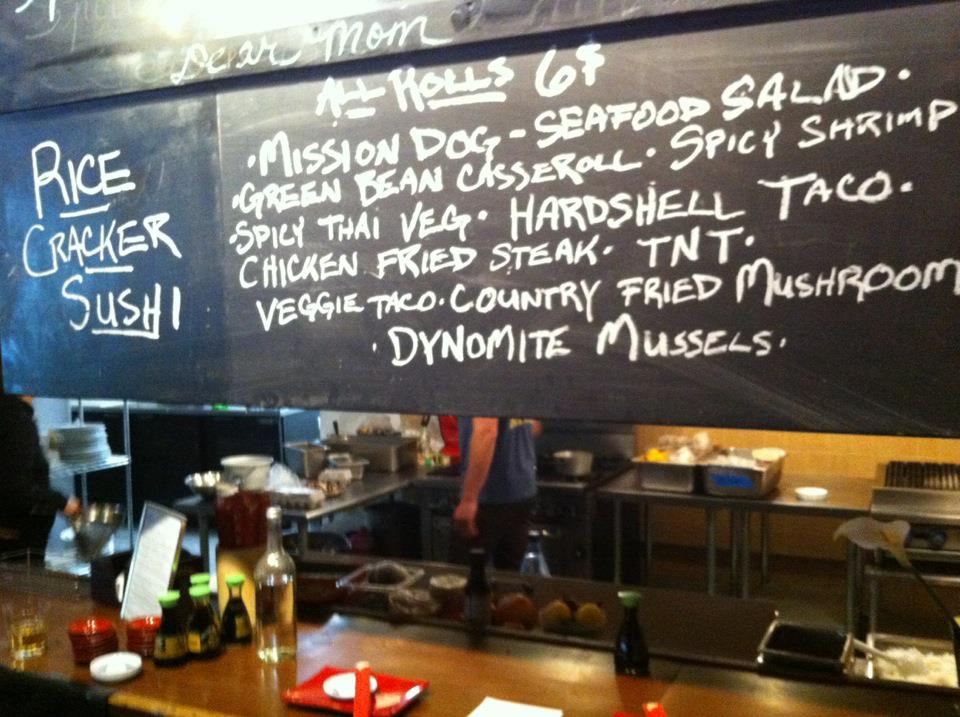 Dear Mom
ALL ROLLS 6$
RICE
CRACKER
SUSHI
· MISSION DOG - SEAFOOD SALAD ·
· GREEN BEAN CASSEROLL · SPICY SHRIMP
· SPICY THAI VEG · HARDSHELL TACO ·
CHICKEN FRIED STEAK · TNT ·
VEGGIE TACO · COUNTRY FRIED MUSHROOM
· DYNOMITE MUSSELS ·